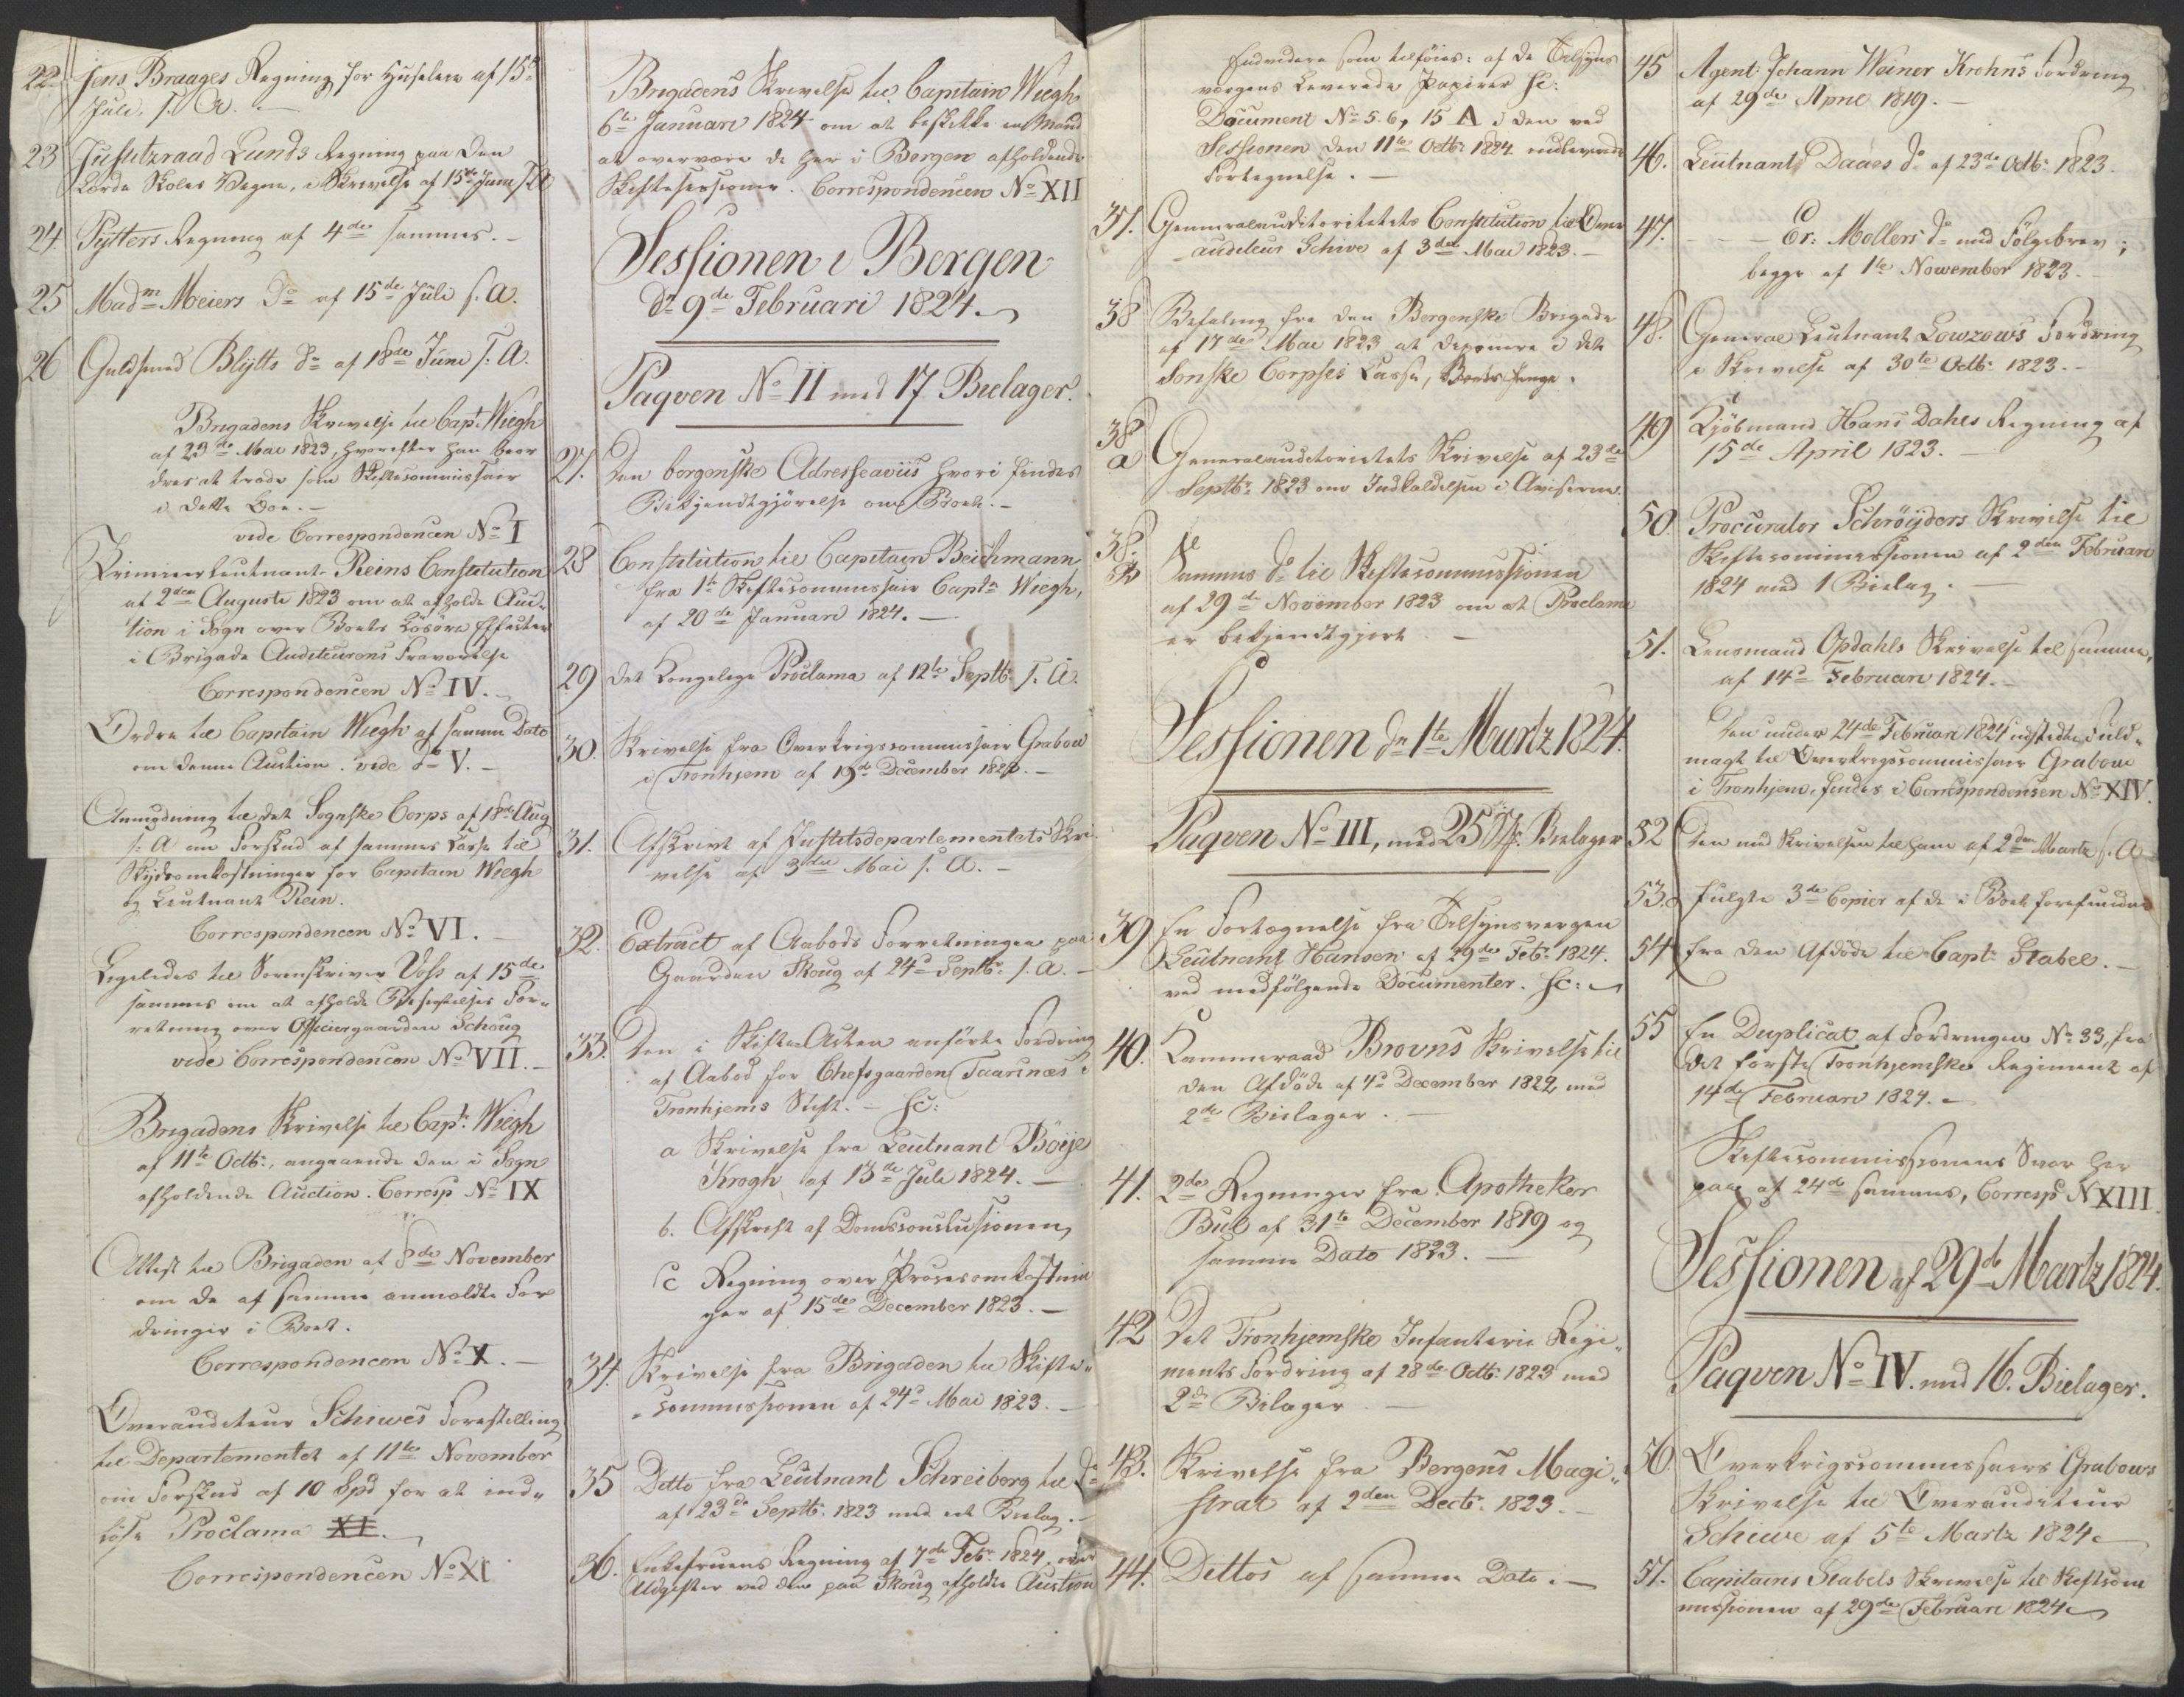 22. Jens Braages Regning for Huseleie af 15de
Juli s. A. —
23 Justitzraad Lunds Regning paa den
Lærde Skoles Vegne, i Skrivelse af 15de Juni s. A.
24. Pytters Regning af 4de sammes. —
25 Madm Meiers do af 15de Juli s. A.
26 Guldsmed Blytts do af 18de Juni s. A.
Brigadens Skrivelse til Capt. Wiegh
af 23de Mai 1823, hvorefter han beor
dres at træde som Skiftecommissair
i dette Boe. —
vide Correspondencen No I
Premierleutnant Reins Constitution
af 2den Auguste 1823 om at afholde Auc„
tion i Sogn over Boets Løsøre Effecter
i Brigade Auditeurens Fraværelse
Correspondencen No IV. —
Ordre til Capitain Wiegh af samme Dato
om denne Auction. vide do V. —
Anmodning til det Sognske Corps af 18de Aug
s. A om Forskud af sammes Casse til
Skydsomkostninger for Capitain Wiegh
og Leutnant Rein.
Correspondencen No VI. —
Ligeledes til Sorenskriver Voss af 15de
sammes om at afholde Besigtelses For„
retning over Officiergaarden Schoug
vide Correspondencen No VII. —
Brigadens Skrivelse til Capt. Wiegh
af 11te Octbr, angaaende den i Sogn
afholdende Auction. Corresp No IX
Attest til Brigaden af 8de November
om de af samme anmeldte For
dringer i Boet.
Correspondencen No X. —
Overauditeur Schiwes Forestilling
til Departementet af 11te November
om Forskud af 10 Spd for at ind„
løse Proclama XI.
Correspondencen No XI
Brigadens Skrivelse til Capitain Wiegh
6te Januari 1824 om at beskikke en Mand
at overvære de her i Bergen afholdende
Skiftesessioner. Correspondencen No XII
Sessionen i Bergen
dn 9de Februari 1824.
Paqven No II med 17 Bielager.
27. Den bergenske Adresseaviis hvori findes
Bekjendtgjørelse om Boet. —
28 Constitution til Capitain Beichmann
fra 1te Skiftecommissair Captn Wiegh,
af 20de Januari 1824. —
29 Det Kongelige Proclama af 12te Septbr s. A.
30. Skrivelse fra Overkrigscommissair Grabow
i Tronhjem af 19de December 1823. —
31. Afskrivt af Justitsdepartementets Skri
velse af 3die Mai s. A. —
32. Extract af Aabods Forretningen paa
Gaarden Skoug af 24de Septbr s. A. —
33. Den i Skifte Acten anførte Fordring
af Aabod for Chefsgaarden Taarinæs i
Tronhjems Stift. — sc:
a Skrivelse fra Leutnant Böije
Krogh, af 13de Juli 1824. —
b. Afskrift af Domsconclusionen,
c Regning over Procesomkostnin
ger af 15de December 1823. —
34. Skrivelse fra Brigaden til Skifte„
„commissionen af 24de Mai 1823. —
35 Ditto fra Leutnant Schreiberg til do
af 23de Septbr 1823 med et Bielag. —
36. Enkefruens Regning af 7de Febr 1824, over
Udgifter ved den paa Skoug afholdte Auction
Endvidere som tilføies: af de Tilsyns
værgens leverede Papirer sc:
Document No 5. 6, 15 A i den ved
Sessionen den 11te Octbr 1824 indleverede
Fortegnelse. —
37. Generalauditoritetets Constitution til Over
„auditeur Schive af 3die Mai 1823. —
38 Befaling fra den Bergenske Brigade
af 17de Mai 1823 at deponere i det
Sonske Corpses Casse, Boets Penge.
38 a Generalauditorietets Skrivelse af 23de
Septbr 1823 om Indkaldelsen i Aviserne.
38. b Sammes do til Skiftecommissionen
af 29de November 1823 om at Proclama
er bekjendtgjort. —
Sessionen dn 1te Martz 1824.
Paqven No III, med 25 Bielager
39 En Fortegnelse fra Tilsynsvergen
Leutnant Hansen af 29de Febr 1824.
ved medfølgende Documenter. sc:
40. Kammeraad Brovns Skrivelse til
den Afdøde af 4de December 1822 med
2de Bielager. —
41. 2de Regninger fra Apotheker
Bull af 31te December 1819 og
samme Dato 1823. —
42 Det Tronhjemske Infanterie Regi„
ments Fordring af 28de Octbr 1823 med
2de Bilager. —
43. Skrivelse fra Bergens Magi„
strat af 2den Decbr 1823. —
44. Dittos af samme Dato —
45 Agent Johann Weiner Krohns Fordring
af 29de April 1819. —
46. Leutnant Daaes do af 23de Octbr 1823.
47. — — Er: Mollers do med Følgebrev;
begge af 1te November 1823. —
48. General Leutnant Lowzows Fordring
i Skrivelse af 30te Octbr 1823. —
49 Kjøbmand Hans Dahls Regning af
15de April 1823. —
50. Procurator Schrøijders Skrivelse til
Skiftecommissionen af 2den Februari
1824 med 1 Bielag. —
51. Lensmand Opdahls Skrivelse til samme,
af 14de Februari 1824. —
Den under 24de Februari 1824 udstedte Fuld„
magt til Overkrigscommissair Grabow
i Tronhjem, findes i Correspondensen No XIV.
52 Den med Skrivelsen til ham af 2den Martz s. A
53. fulgte 3de Copier af de i Boet forefundne
54 fra den Afdøde til Captn Stabel. —
55 En Duplicat af Fordringen No 33, fra
det første Tronhjemske Regiment af
14de Februari 1824. —
Skiftecommissionens Svar her
paa af 24de sammes, Corresp No XIII.
Sessionen af 29de Martz 1824.
Paqven No IV. med 16. Bielager.
56. Overkrigscommissairs Grabows
Skrivelse til Overauditeur
Schiwe af 5te Martz 1824
57. Capitains Stabels Skrivelse til Skiftecom
missionen af 29de Februari 1824